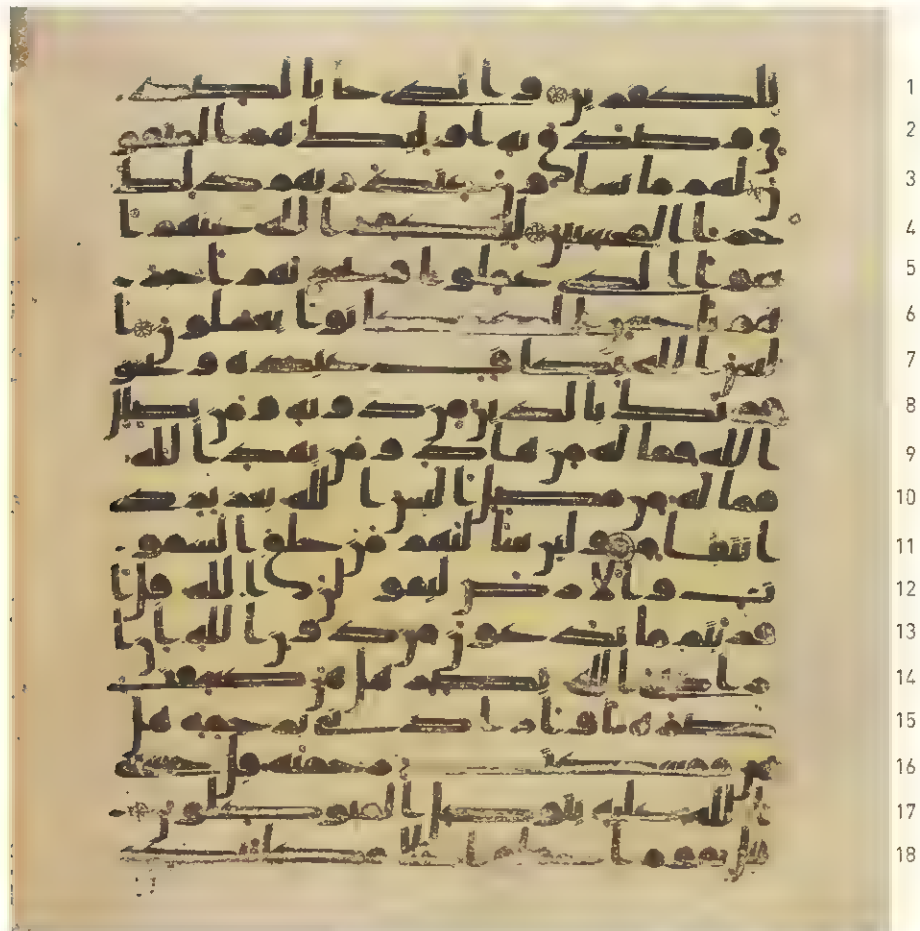 للكفرين وا لذي جا بالصد
ق وصدق به اوليك هم المتقو
ن لهم ما يشاون عند ربهم ذلك
جزا المحسنين ليكفر الله عنهم ا
سوا الذي عملوا ويجزيهم اجر
هم باحسن الذي كانوا يعملون ا
ليس الله بكاف عبده ويخو
فونك بالذين من دونه ومن يضلل
الله فما له من هاد ومن يهد الله
فما له من مضل اليس الله بعزيز ذي
انتقام ولين سالتهم من خلق السمو
ت والارض ليقولن الله قل ا
فريتم ما تدعون من دون الله ان ا
رادني الله بضر هل هن
كشفت ضره او ارادني برحمة هل
هن ممسكت رحمته قل حسبي
الله عليه يتوكل المتوكلون
قل يقوم اعملوا على مكانتكم
1
2
3
4
5
6
7
8
9
10
11
12
13
14
15
16
17
18